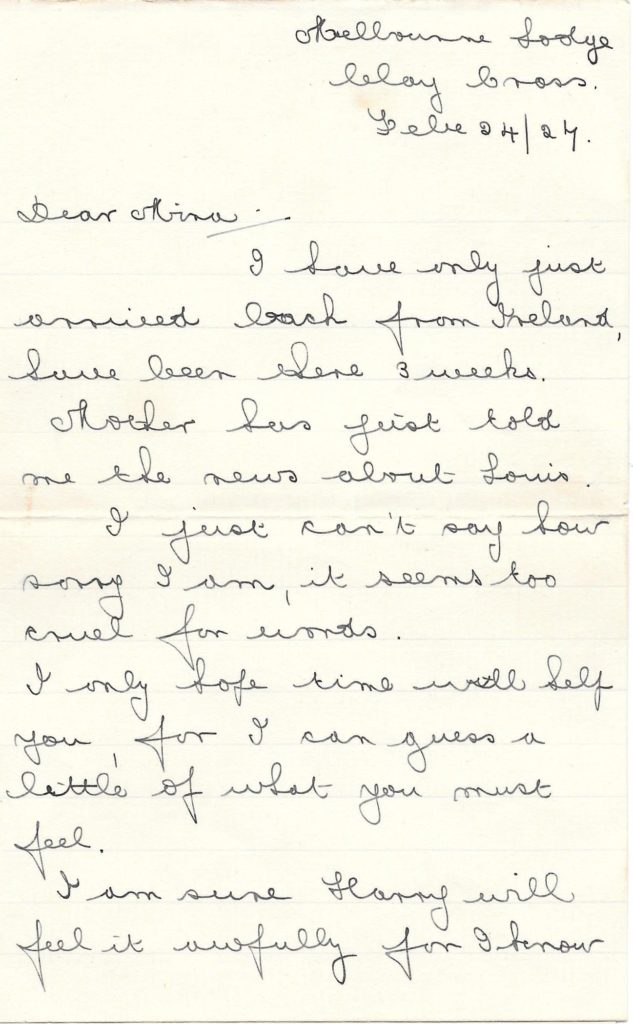 Melbourne Lodge
Clay Cross.
Febr 24/27.
Dear Mina
I have only just
arrived back from Ireland,
have been there 3 weeks.
Mother has just told
me the news about Louis.
I just can't say how
sorry I am, it seems too
cruel for words.
I only hope time will help
you, for I can guess a
little of what you must
feel.
I am sure Harry will
feel it awfully for I know